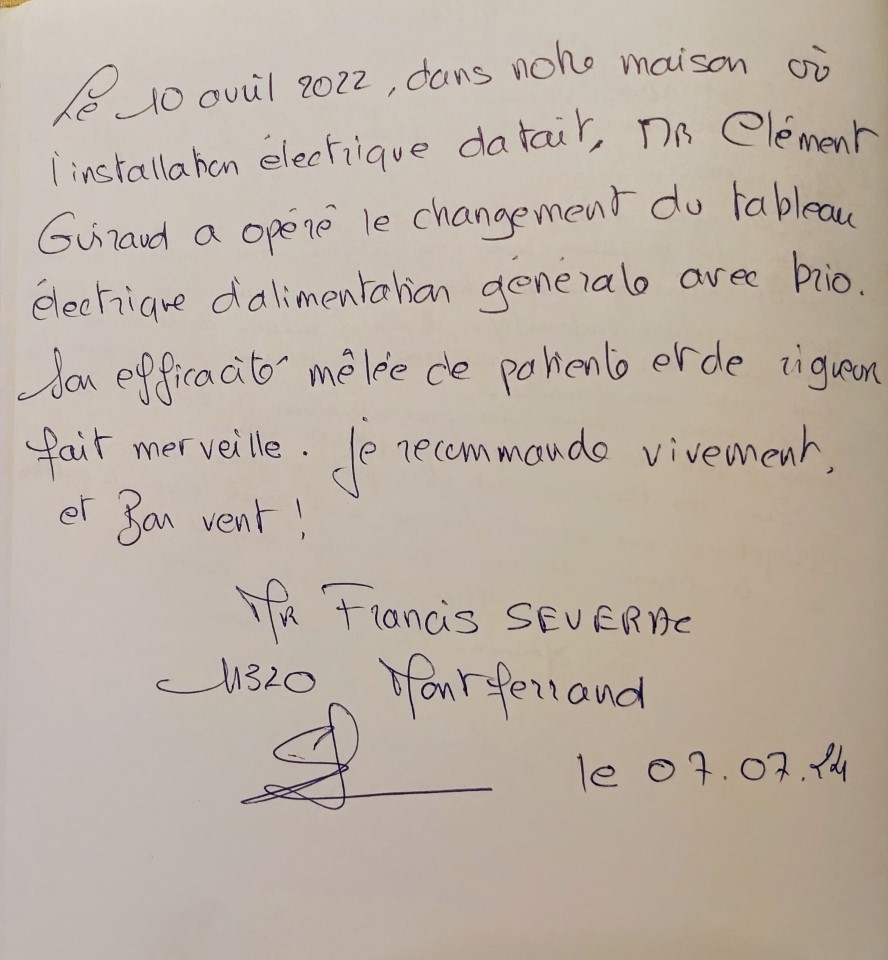 Le 10 avril 2022, dans notre maison où
l'installation électrique datait, MR Clément
Guiraud a opéré le changement du tableau
électrique d'alimentation générale avec brio.
Son efficacité mêlée de patiente et de rigueur
fait merveille. Je recommande vivement,
et Bon vent !
MR Francis SEVERAC
11320 Montferrand
le 07.07.24